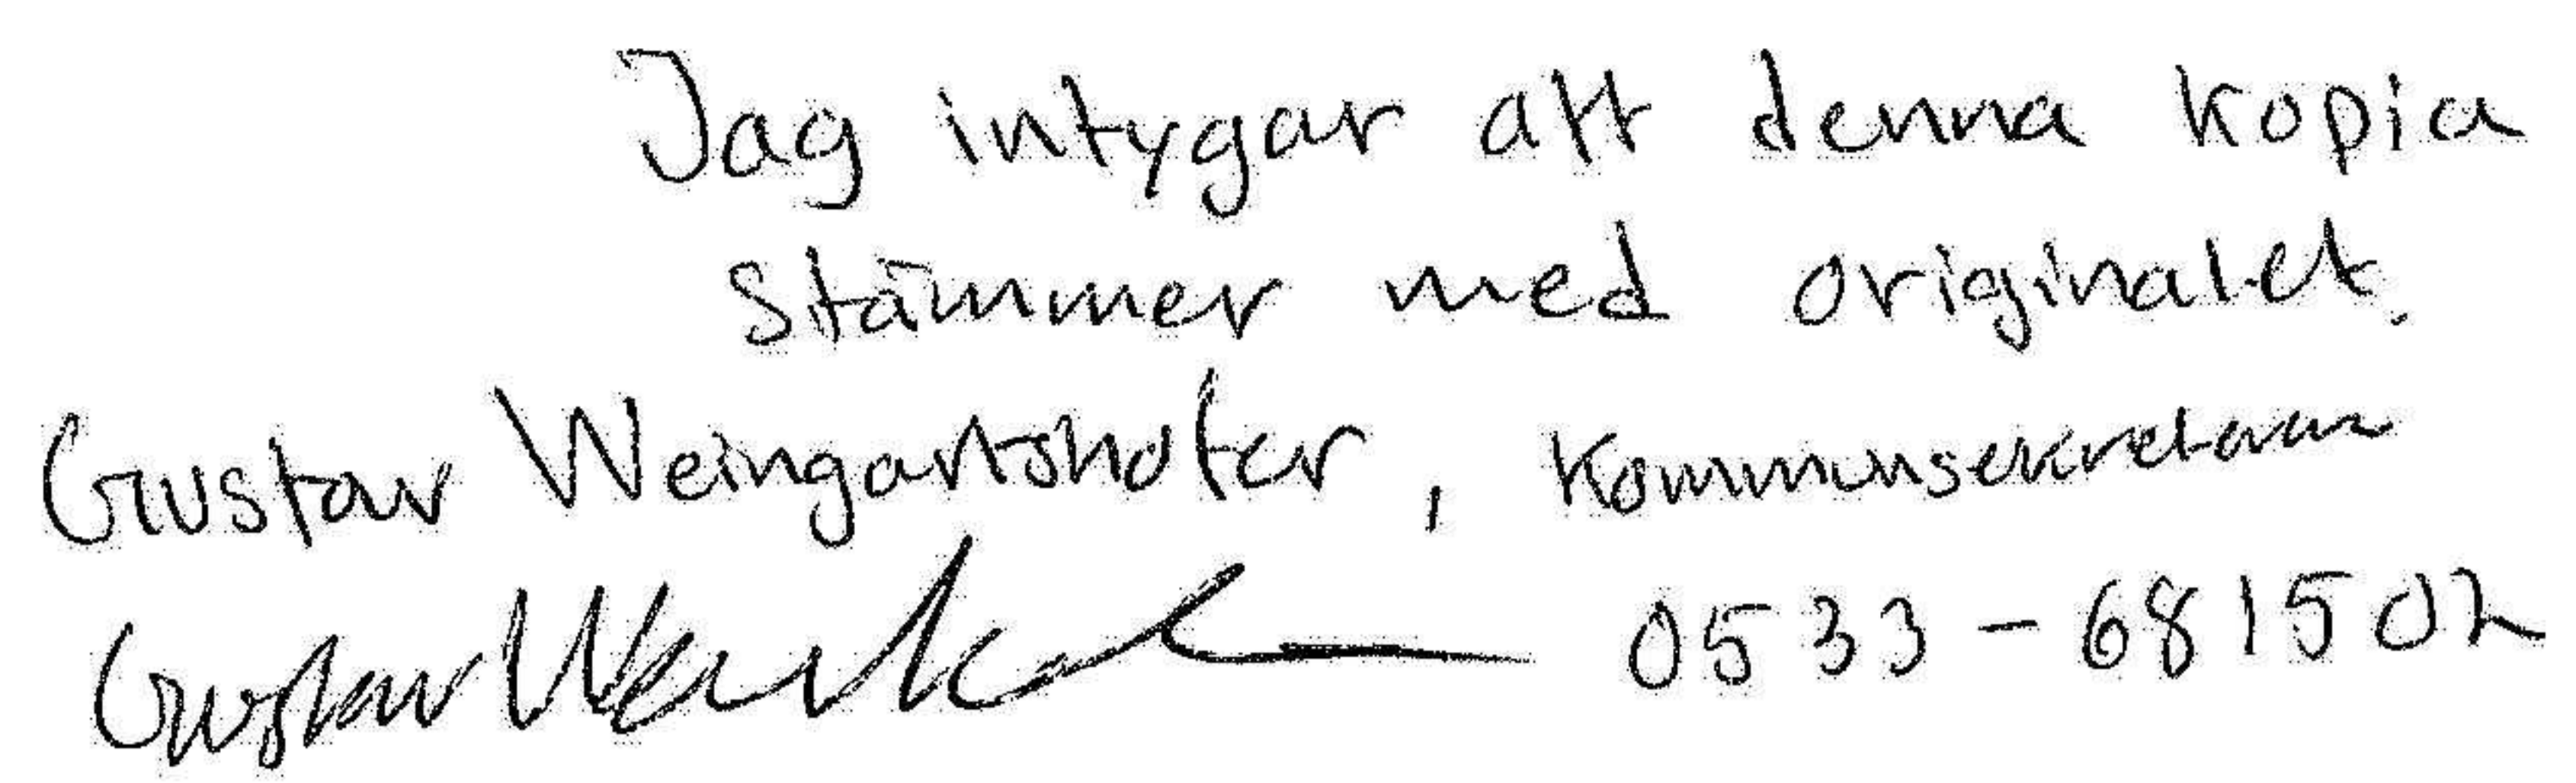 Jag intygar att denna kopia
stämmer med originalet.
Gustav Weingartshofer, Kommunsekreterare
Gustav 0533-681502